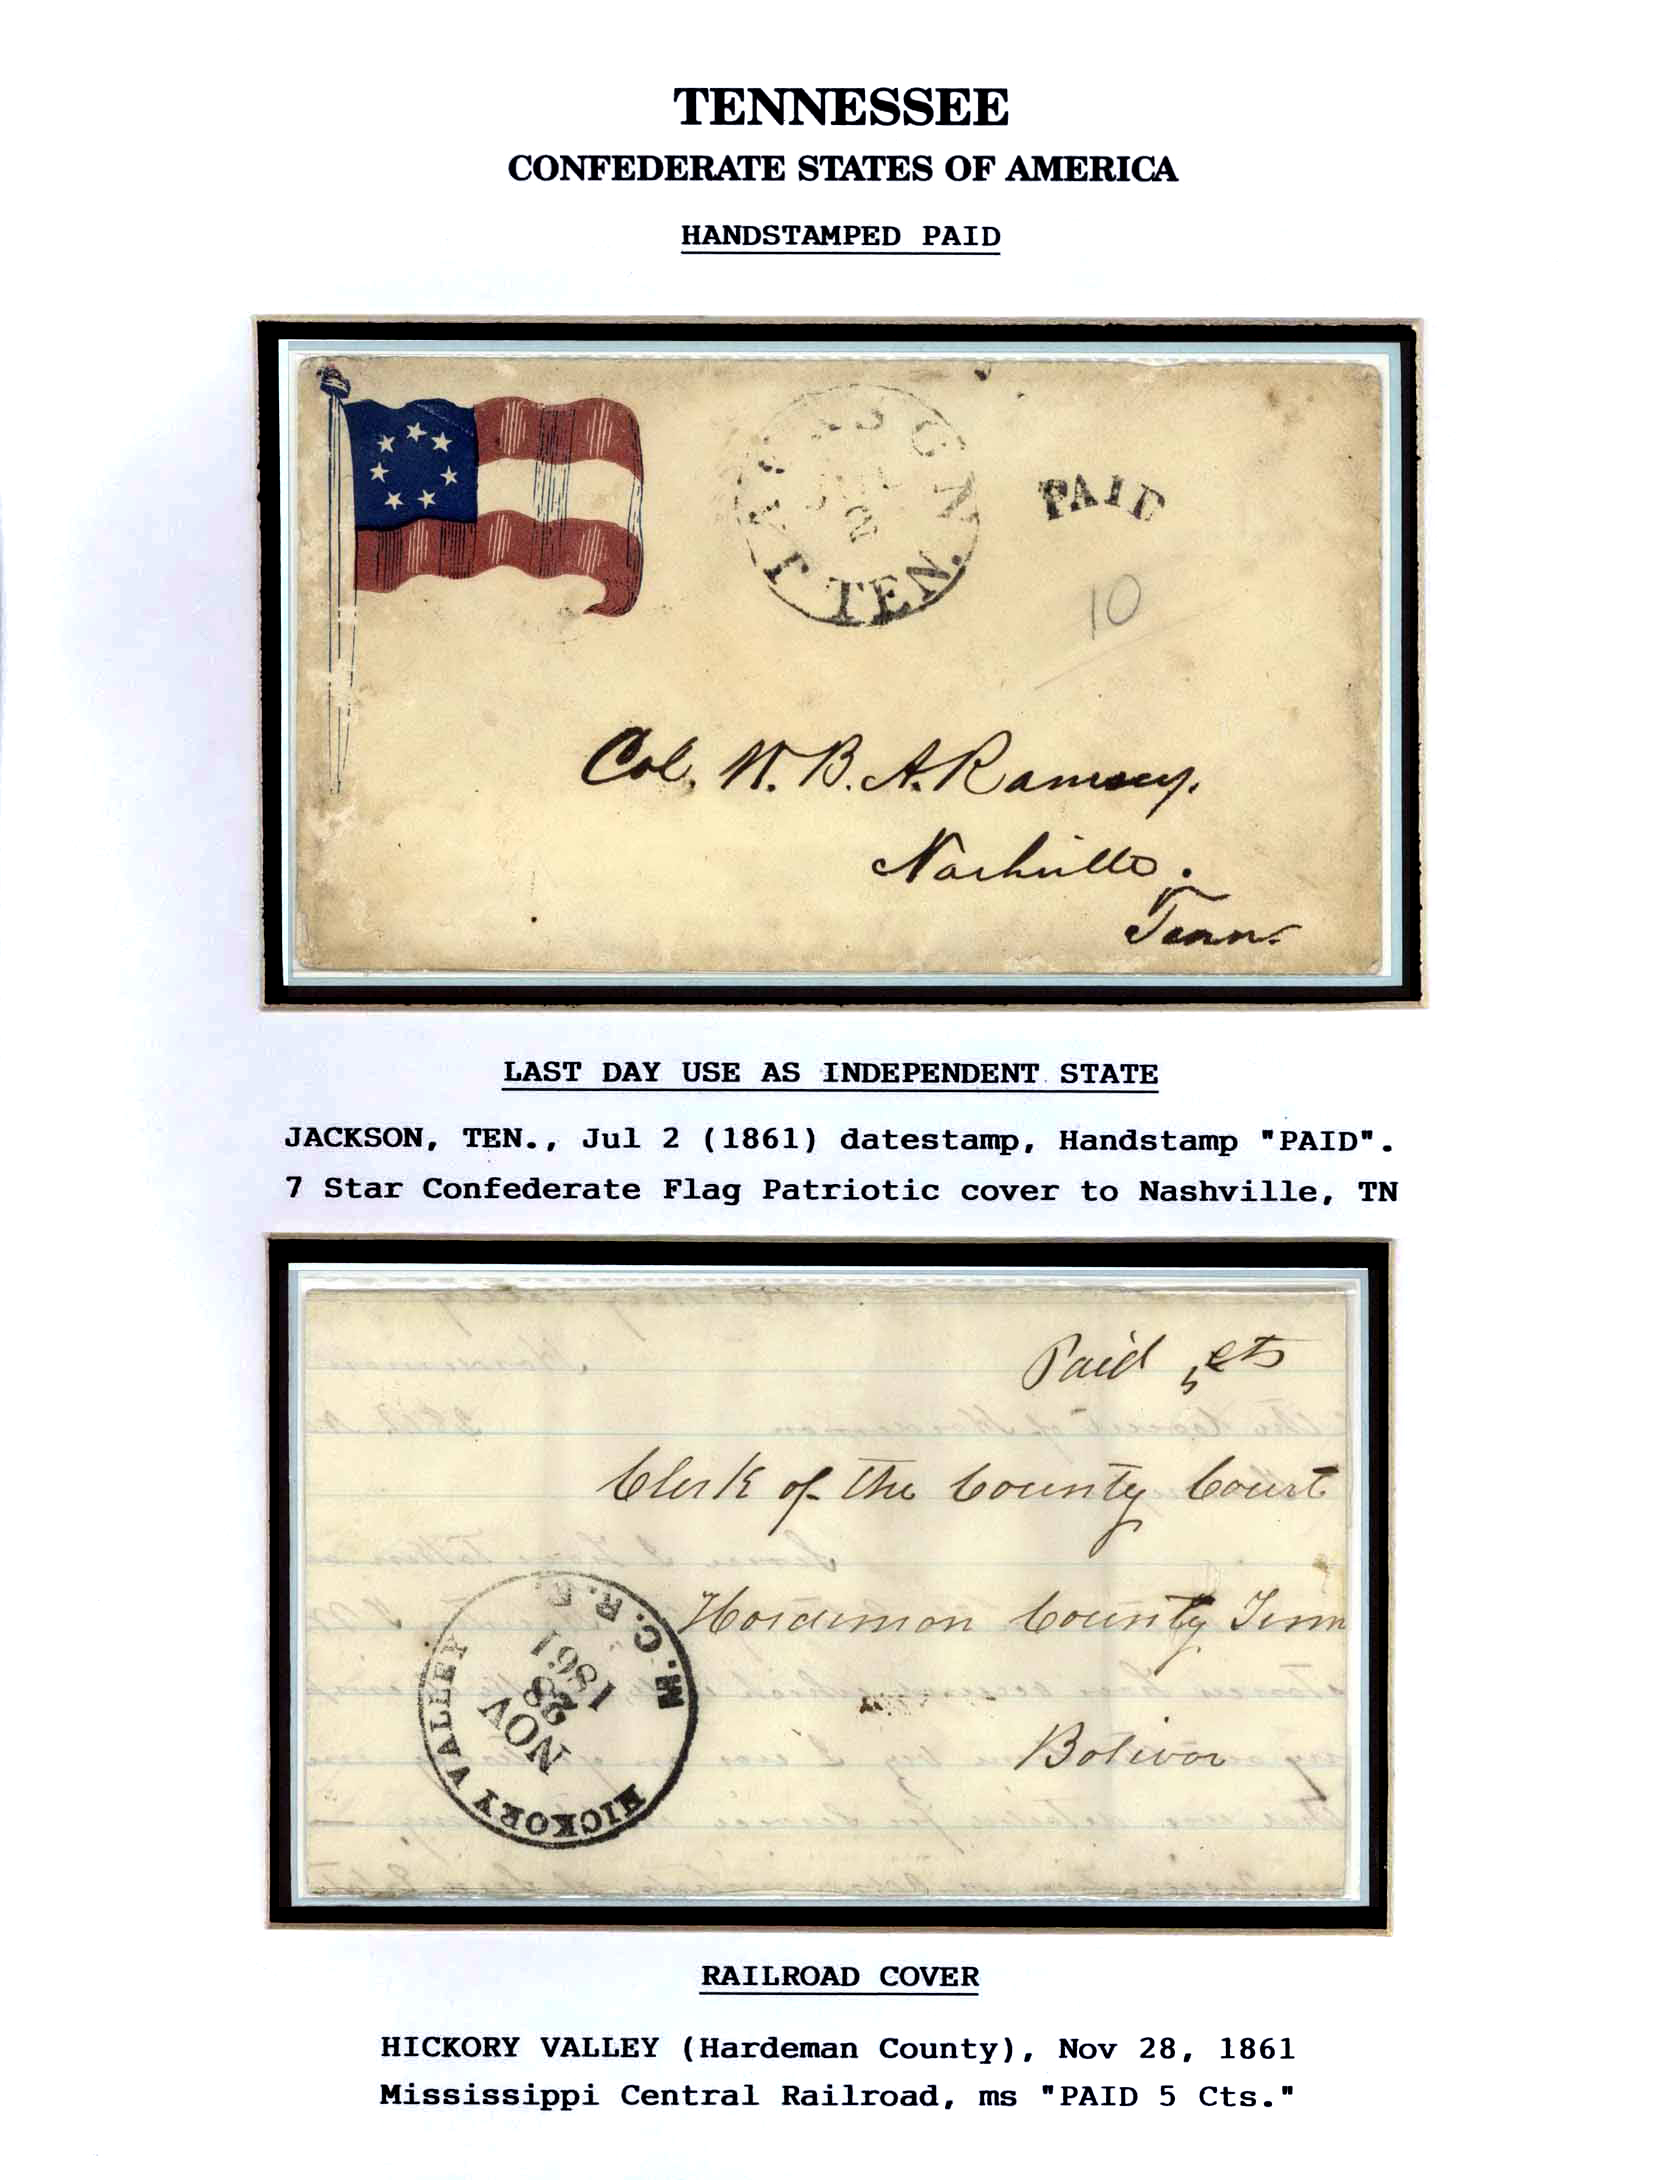 TENNESSEE
CONFEDERATE STATES OF AMERICA
HANDSTAMPED PAID
JACKSON
JUL
2
TEN.
PAID
10
Col. W. B. A. Ramsey.
Nashville.
Tenn.
LAST DAY USE AS INDEPENDENT STATE
JACKSON, TEN., Jul 2 (1861) datestamp, Handstamp "PAID".
7 Star Confederate Flag Patriotic cover to Nashville, TN
Paid 5 cts
Clerk of the County Court
Hardeman County Tenn
Bolivar
HICKORY VALLEY M.C.R.R.
NOV
28
1861
RAILROAD COVER
HICKORY VALLEY (Hardeman County), Nov 28, 1861
Mississippi Central Railroad, ms "PAID 5 Cts."